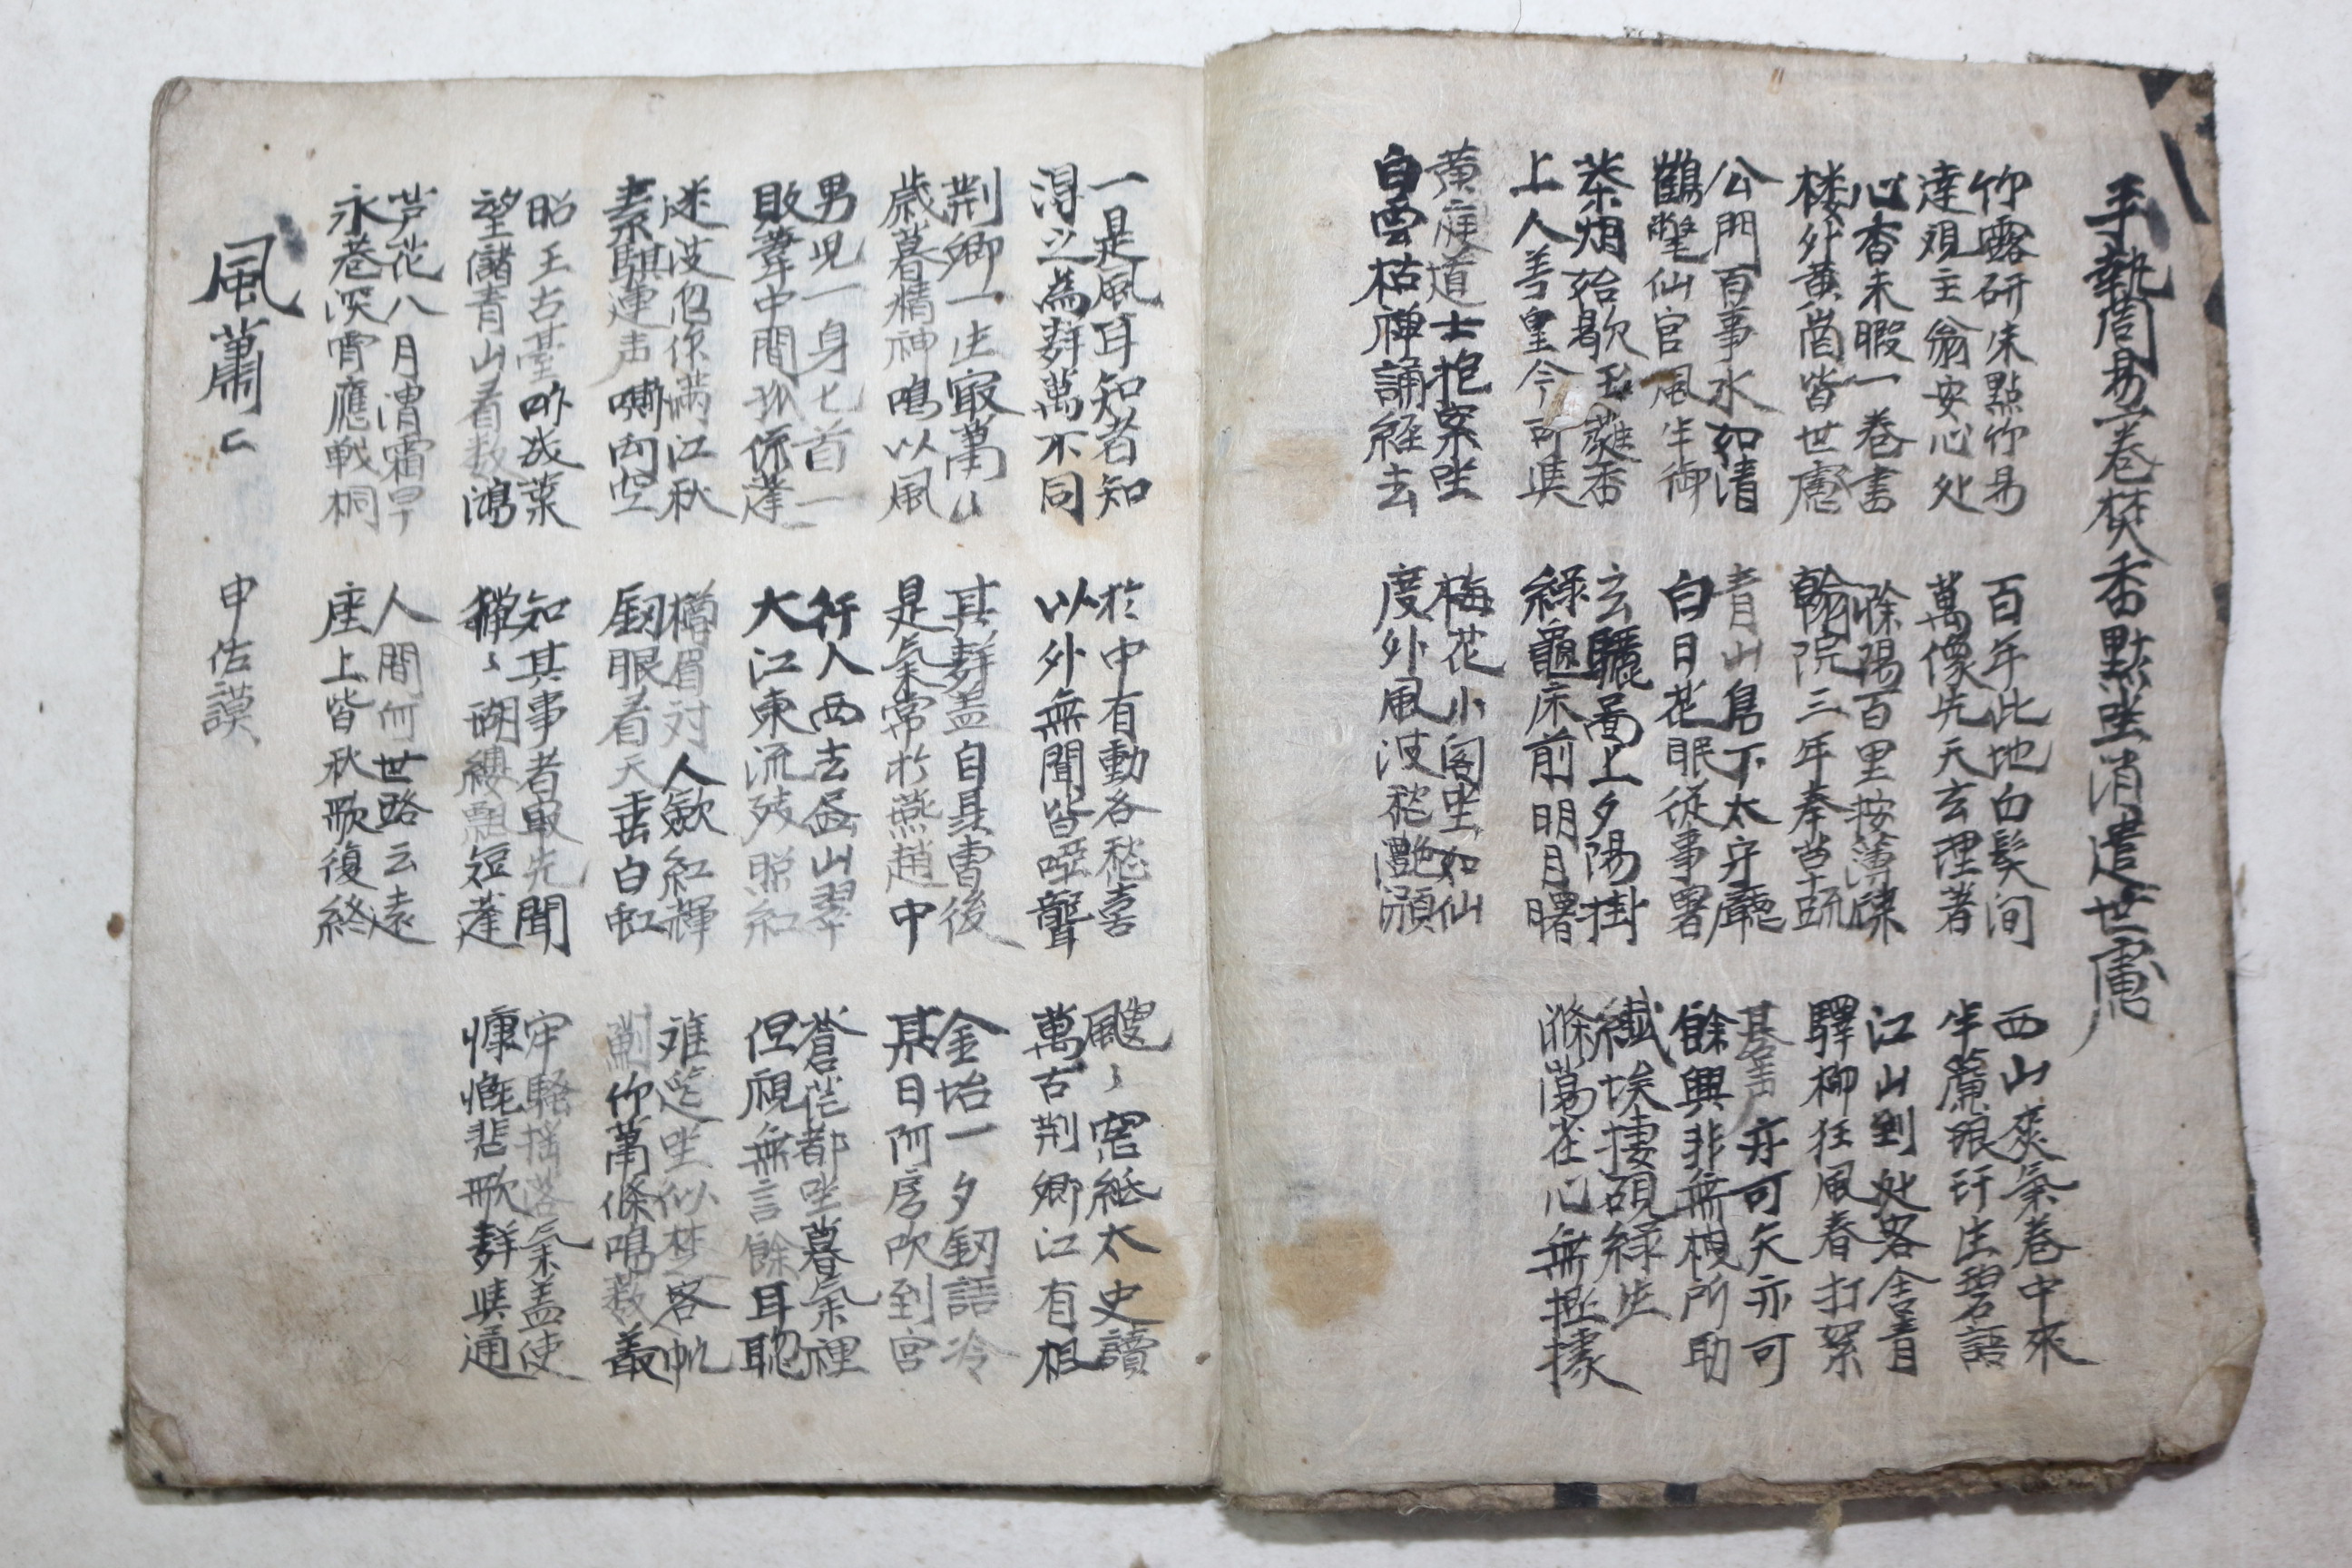 手執周易一卷焚香黙坐消遣世慮
竹露研朱點竹易
達觀主翁安心处
百年此地白髮间
萬像先天玄理著
西山爽氣巷中來
半簾琅玕生碧語
心香未暇一卷書
楼外黄崗皆世慮
滁陽百里按簿牒
翰院三年奉草疏
江山到处客舍青
驛柳狂風春打絮
公門百事水如清
鶴氅仙官風半御
青山鳥下太守廳
白日花眠從事署
碁声亦可矢亦可
餘興非無根所助
茶烟始歇玉蕤香
上人羲皇今可與
玄驪啚上夕陽掛
綠龜床前明月曙
纖埃捿硯綠生
滌蕩在心無摭據
黄庭道士抱案坐
白雲枯禅誦経去
梅花小阁坐如仙
度外風波愁灔澦
一是風耳知者知
得之為群萬不同
於中有動各愁喜
以外無聞皆啞聾
颼ヽ窓紙太史讀
萬古荆卿江有楓
荆卿一出寂萬山
歲暮精神鳴以風
其群盖自具雪後
是氣常於燕趙中
金坮一夕釼語冷
某日阿房吹到宫
男児一身匕首一
敗葦中間孤係蓬
行人西去岳山翠
大江東流残照紅
蒼茫都坐暮氣裡
但視無言餘耳聦
迷茫忽作満江秋
素騏連声嘶雨空
樽眉対人歛紅輝
釼眼看天垂白虹
难筵坐似梦客帆
蓟竹萬條鳴数叢
昭王古臺昨戍葉
望儲青山看数鴻
知其事者最先聞
獵ヽ瑚纓飄短蓬
牢騷揺落氣盖使
慷慨悲歌群與通
芦花八月渭霜早
永巷深宵應戦桐
人間何世路云遠
座上皆秋歌復終
風蕭ㄷ 申佐謨